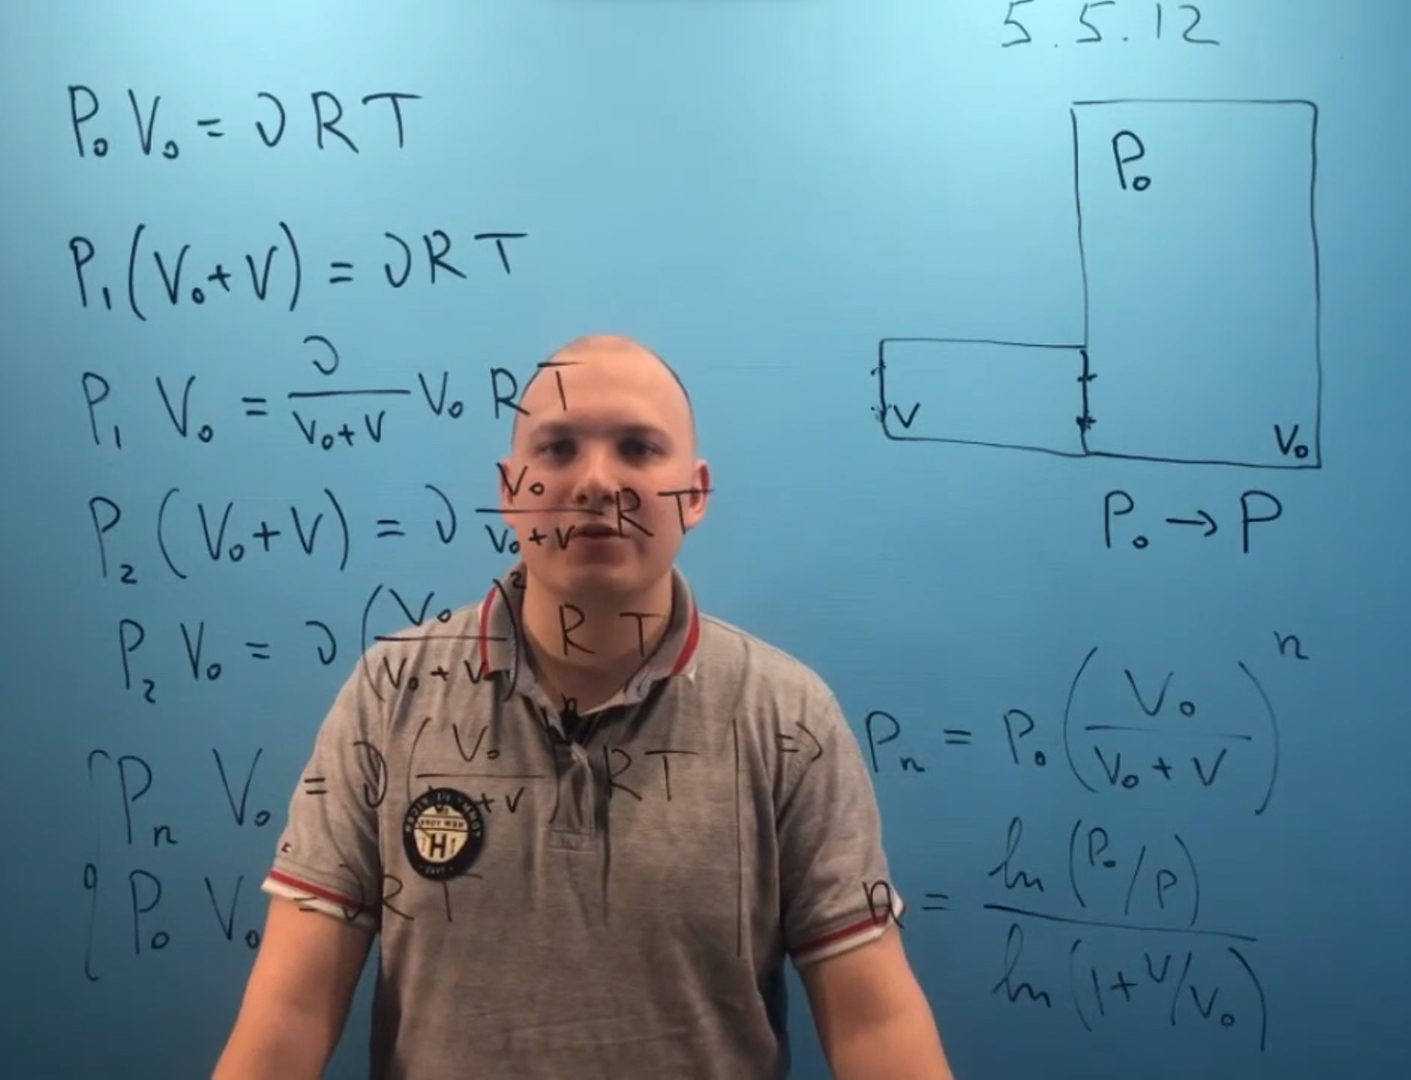 5.5.12
P₀ V₀ = ν R T
P₁ (V₀ + V) = ν R T
P₁ V₀ = ν / (V₀ + V) V₀ R T
P₂ (V₀ + V) = ν V₀ / (V₀ + V) R T
P₂ V₀ = ν (V₀ / (V₀ + V))² R T
Pₙ V₀ = ν (V₀ / (V₀ + V))ⁿ R T | ⇒
P₀ V₀ = ν R T
P₀
V
V₀
P₀ → P
Pₙ = P₀ (V₀ / (V₀ + V))ⁿ
n = ln (P₀/P) / ln (1 + V/V₀)
H